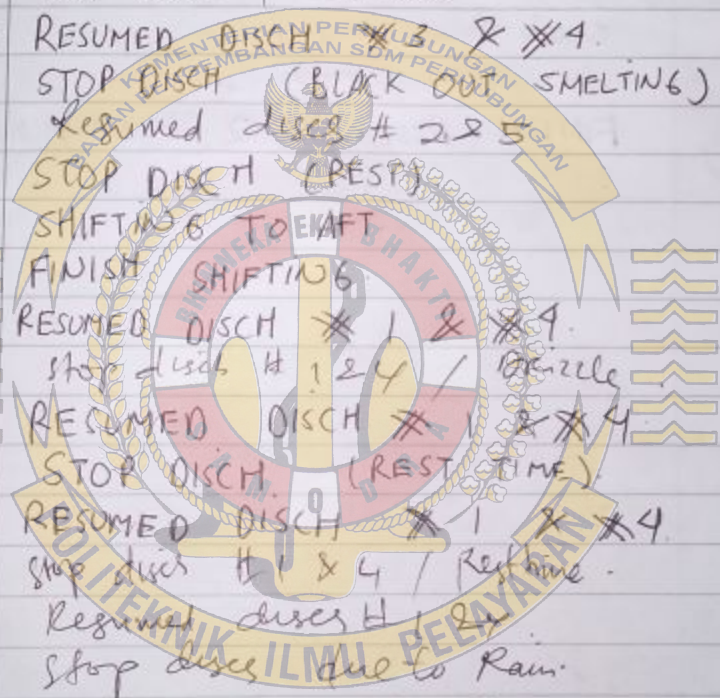 RESUMED DISCH #3 & #4.
STOP DISCH (BLACK OUT SMELTING)
Resumed disch # 2 & 5
STOP DISCH (REST)
SHIFTING TO AFT
FINISH SHIFTING
RESUMED DISCH # 1 & #4.
Stop disch # 1 & 4 / Drizzle.
RESUMED DISCH # 1 & #4
STOP DISCH. (REST TIME).
RESUMED DISCH # 1 & #4
Stop disch # 1 & 4 / Rest time.
Resumed disch # 1 &
Stop disch due to Rain.
BADAN PENGEMBANGAN SDM PERHUBUNGAN
POLITEKNIK ILMU PELAYARAN